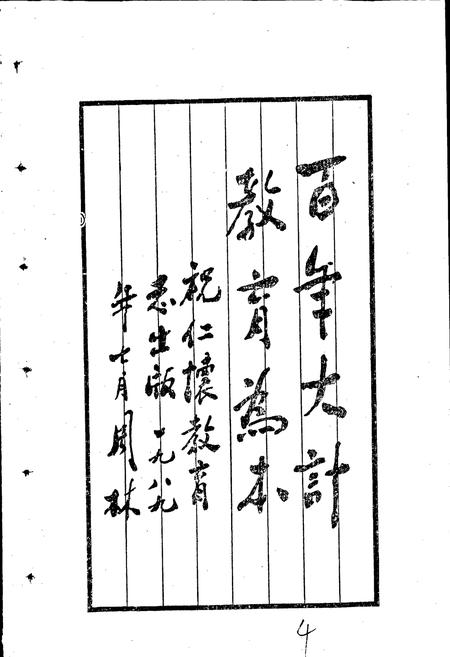 百年大计
教育為本
祝仁懷教育
志出版一九八九
年七月周林
4